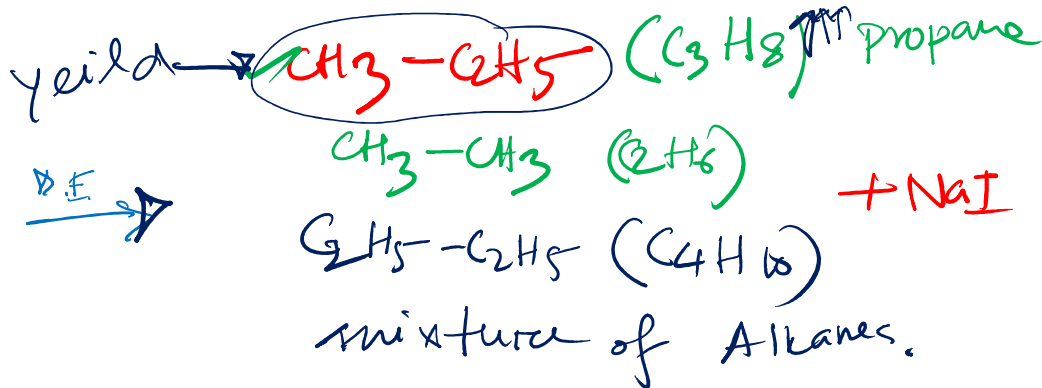 yeild → CH3 - C2H5 (C3H8) propane
CH3 - CH3 (C2H6)
D.E → + NaI
C2H5 - C2H5 (C4H10)
mixture of Alkanes.